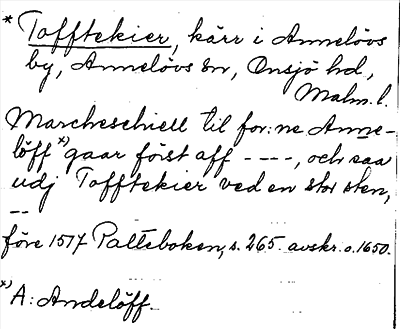 * Tofftekier, kärr i Annelövs
by, Annelövs sn, Onsjö hd,
Malm. l.
Marcheschiell til for:ne Anne-
löff x) gaar först aff - - - -, och saa
udj Tofftekier ved en stor sten,
- -
före 1517 Palteboken, s. 265. avskr. o. 1650.
x) A: Andelöff.